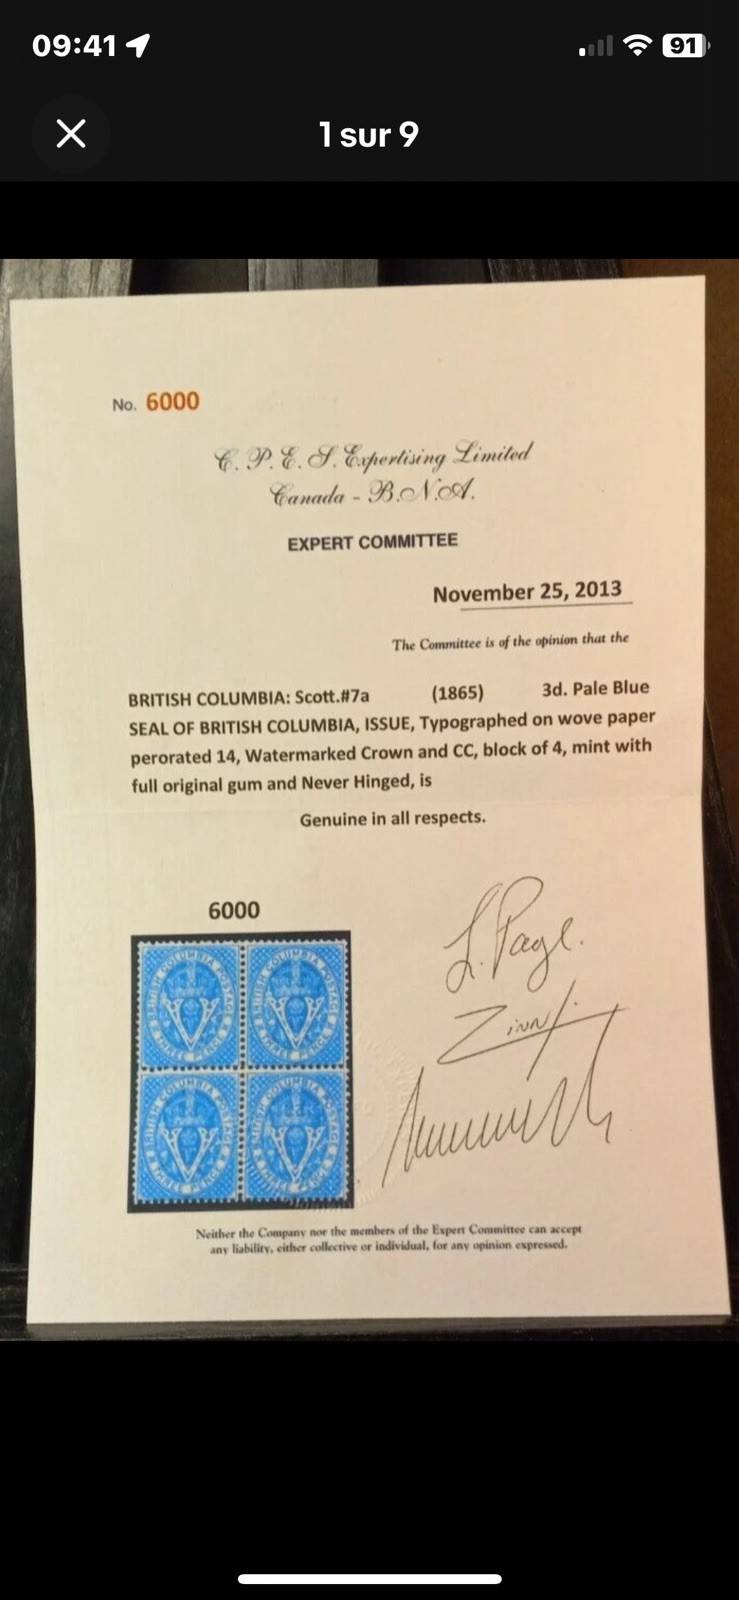 09:41
91
1 sur 9
No. 6000
C. P. E. S. Expertising Limited
Canada - B.N.A.
EXPERT COMMITTEE
November 25, 2013
The Committee is of the opinion that the
BRITISH COLUMBIA: Scott.#7a (1865) 3d. Pale Blue
SEAL OF BRITISH COLUMBIA, ISSUE, Typographed on wove paper
perorated 14, Watermarked Crown and CC, block of 4, mint with
full original gum and Never Hinged, is
Genuine in all respects.
6000
BRITISH COLUMBIA POSTAGE
THREE PENCE
BRITISH COLUMBIA POSTAGE
THREE PENCE
BRITISH COLUMBIA POSTAGE
THREE PENCE
BRITISH COLUMBIA POSTAGE
THREE PENCE
L. Page.
Neither the Company nor the members of the Expert Committee can accept
any liability, either collective or individual, for any opinion expressed.